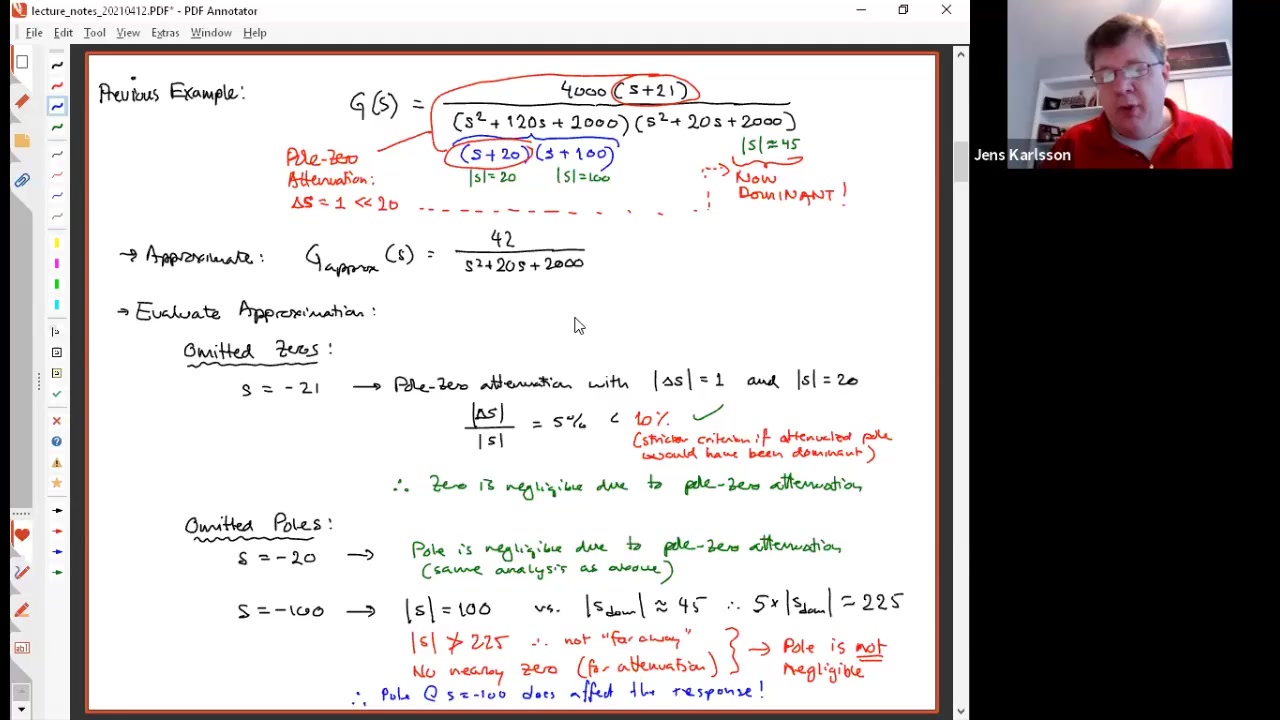 lecture_notes_20210412.PDF* - PDF Annotator
File Edit Tool View Extras Window Help
Jens Karlsson
Previous Example:
G(s) = 4000 (s+21)
(s²+120s+2000)(s²+20s+2000)
(s+20)(s+100)
|s|≈45
|s|=20 |s|=100
Pole-Zero
Attenuation:
Δs = 1 << 20
NOW
DOMINANT!
→ Approximate: G approx (s) = 42
s²+20s+2000
→ Evaluate Approximation:
Omitted Zeros:
s = -21 → Pole-zero attenuation with |Δs| = 1 and |s| = 20
|Δs|
|s| = 5% < 10% ✓
(stricter criterion if attenuated pole
would have been dominant)
∴ Zero is negligible due to pole-zero attenuation
Omitted Poles:
s = -20 → Pole is negligible due to pole-zero attenuation
(same analysis as above)
s = -100 → |s| = 100 vs. |s dom| ≈ 45 ∴ 5×|s dom| ≈ 225
|s| ≯ 225 ∴ not "far away"
No nearby zero (for attenuation)
→ Pole is not
negligible
∴ Pole @ s=-100 does affect the response!